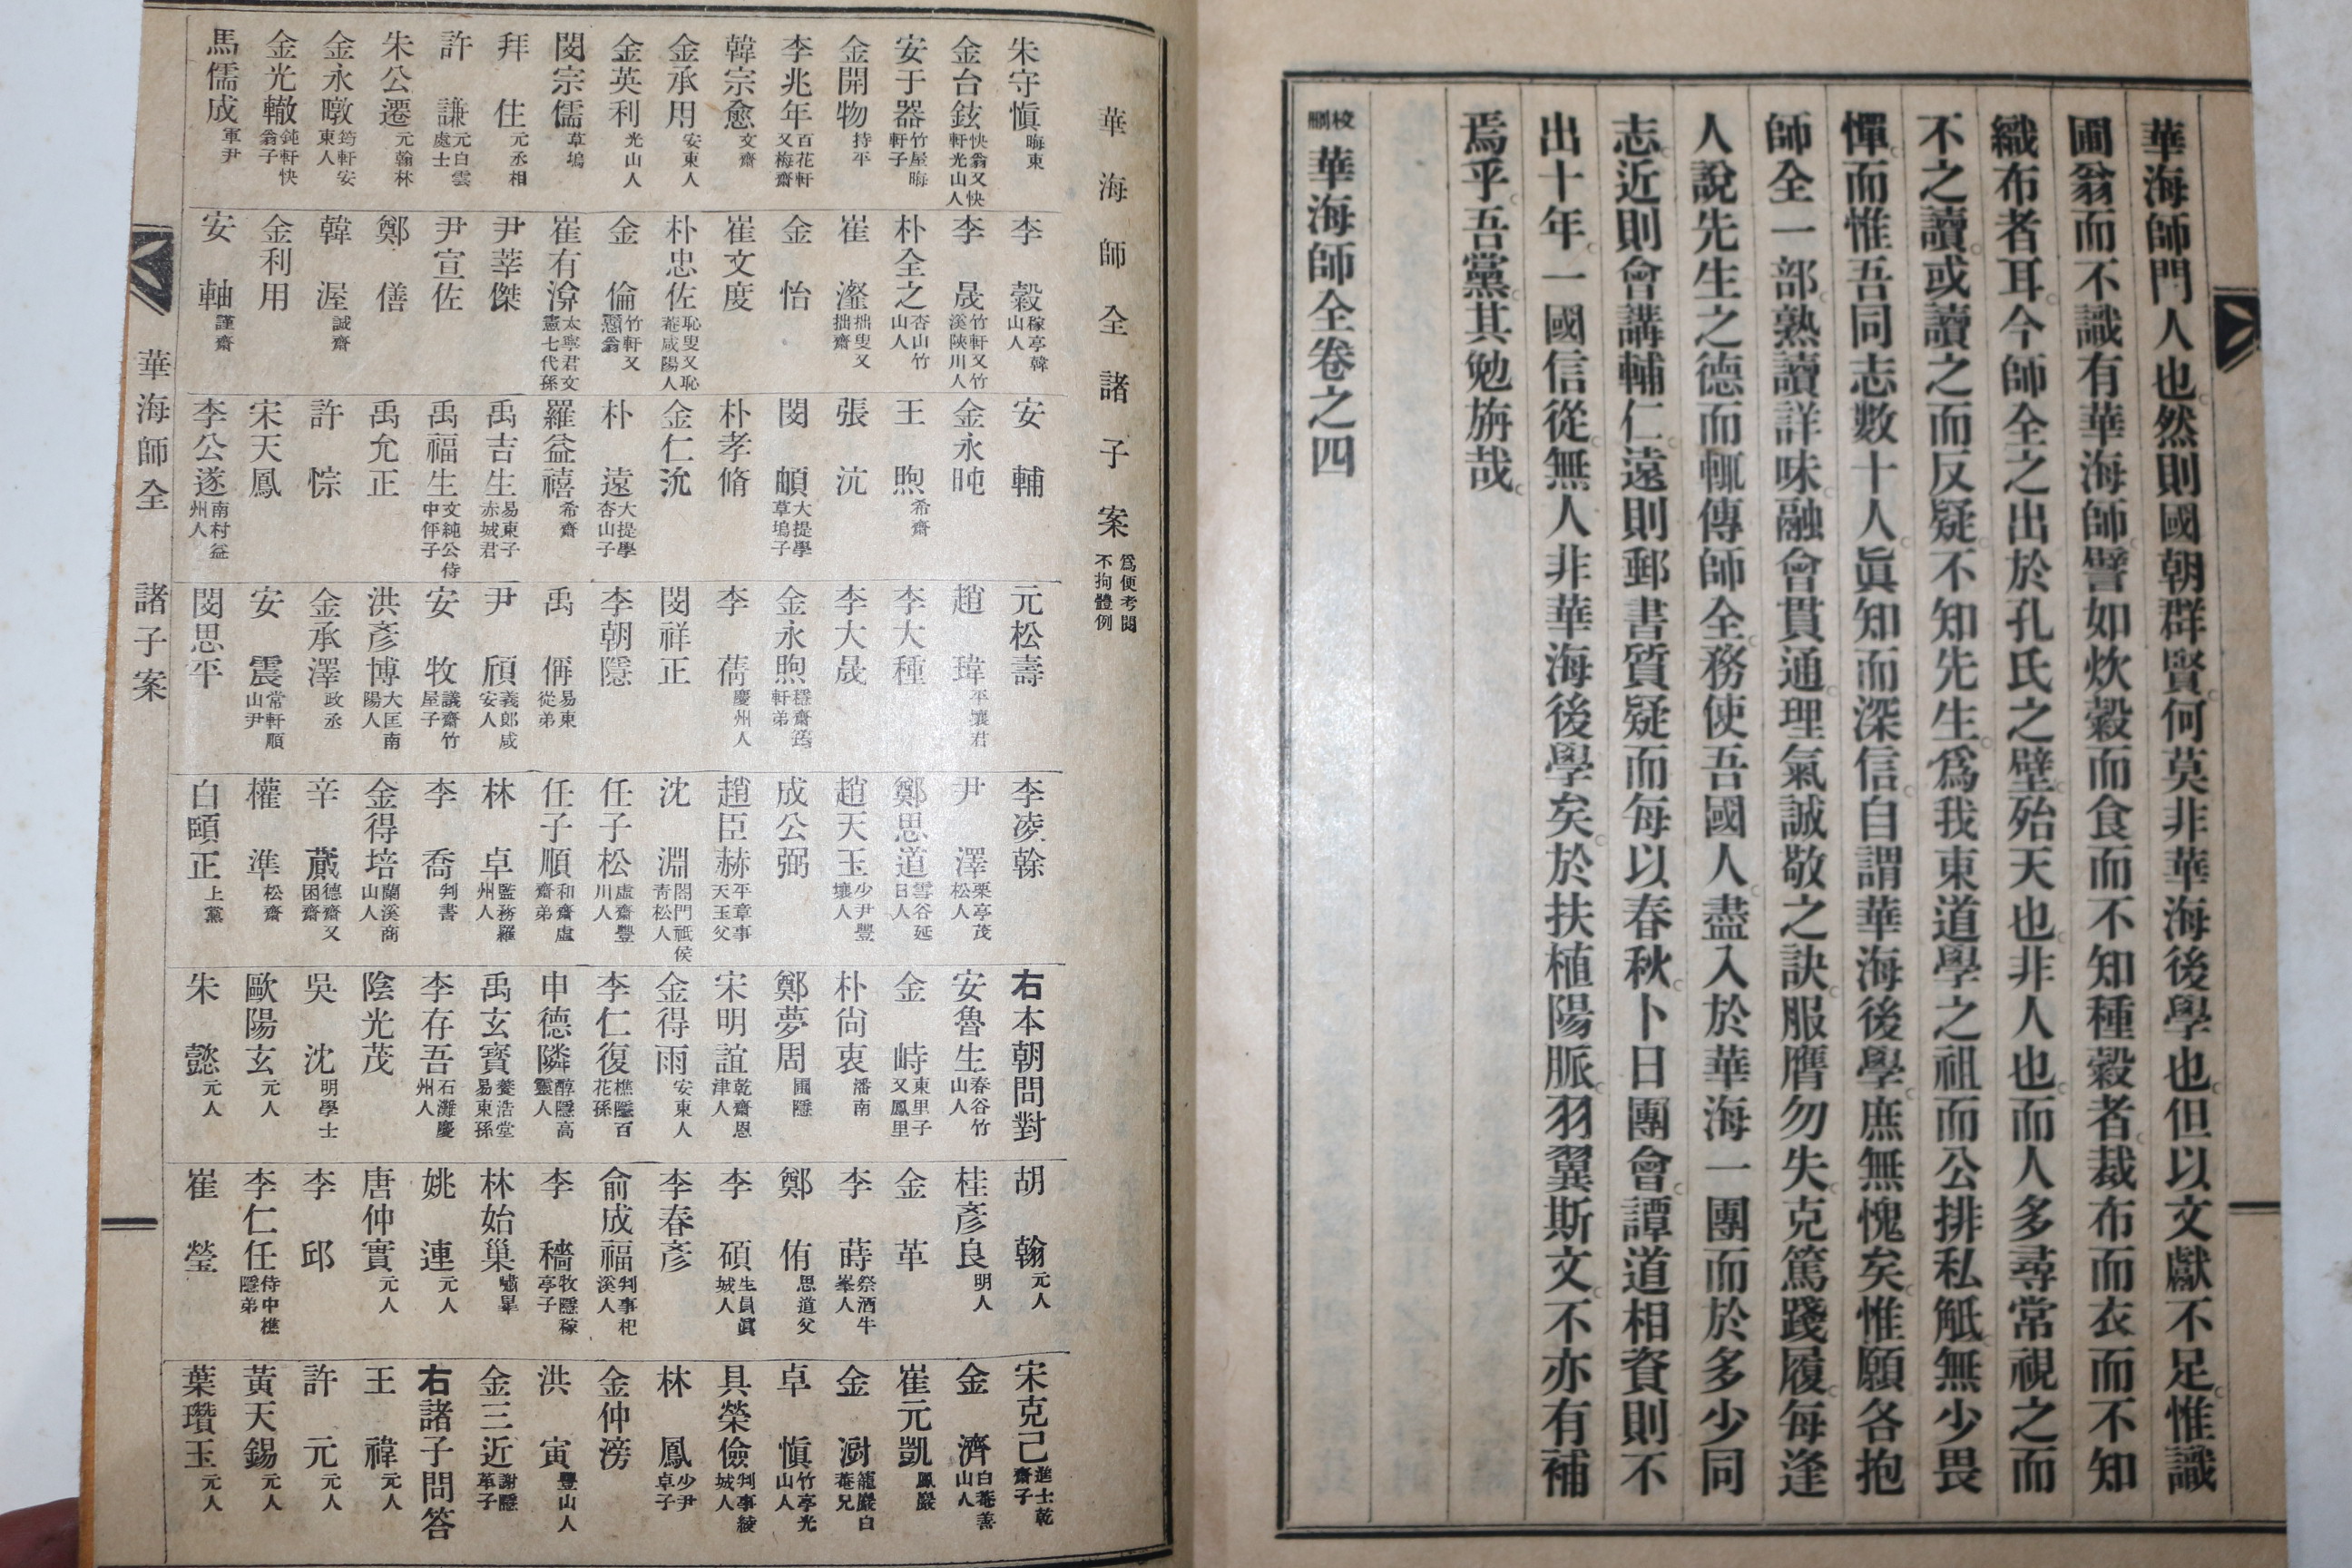 華海師門人也然則國朝群賢何莫非華海後學也但以文獻不足惟識
圃翁而不識有華海師譬如炊穀而食而不知種穀者裁布而衣而不知
織布者耳今師全之出於孔氏之壁殆天也非人也而人多尋常視之而
不之讀或讀之而反疑不知先生爲我東道學之祖而公排私觝無少畏
憚而惟吾同志數十人眞知而深信自謂華海後學庶無愧矣惟願各抱
師全一部熟讀詳味融會貫通理氣誠敬之訣服膺勿失克篤踐履每逢
人說先生之德而輒傳師全務使吾國人盡入於華海一團而於多少同
志近則會講輔仁遠則郵書質疑而每以春秋卜日團會譚道相資則不
出十年一國信從無人非華海後學矣於扶植陽脈羽翼斯文不亦有補
焉乎吾黨其勉旃哉
校刪華海師全卷之四
華海師全諸子案 爲便考閱不拘體例
朱守愼 晦東
金台鉉 快翁又快軒光山人
安于器 竹屋晦軒子
金開物 持平
李兆年 百花軒又梅齋
韓宗愈 文齋
金承用 安東人
金英利 光山人
閔宗儒 草塢
拜住 元丞相
許謙 元白雲處士
朱公遷 元翰林
金永暾 筠軒安東人
金光轍 鈍軒快翁子
馬儒成 軍尹
李穀 稼亭韓山人
李晟 竹軒又竹溪陜川人
朴全之 杏山竹山人
崔瀣 拙叟又拙齋
金怡
崔文度
朴忠佐 恥叟又恥菴咸陽人
金倫 竹軒又戇翁
崔有渰 太寧君文憲七代孫
尹莘傑
尹宣佐
鄭僐
韓渥 誠齋
金利用
安軸 謹齋
安輔
金永旽
王煦 希齋
張沆
閔頔 大提學草塢子
朴孝脩
金仁沇
朴遠 大提學杏山子
羅益禧 希齋
禹吉生 易東子赤城君
禹福生 文純公侍中伻子
禹允正
許悰
宋天鳳
李公遂 南村益州人
元松壽
趙瑋 平壤君
李大種
李大晟
金永煦 穩齋筠軒弟
李蒨 慶州人
閔祥正
李朝隱
禹偁 易東從弟
尹頎 義郎咸安人
安牧 議齋竹屋子
洪彥博 大匡南陽人
金承澤 政丞
安震 常軒順山尹
閔思平
李凌幹
尹澤 栗亭茂松人
鄭思道 雪谷延日人
趙天玉 少尹豐壤人
成公弼
趙臣赫 平章事天玉父
沈淵 閤門祗侯靑松人
任子松 虛齋豐川人
任子順 和齋虛齋弟
林卓 監務羅州人
李喬 判書
金得培 蘭溪商山人
辛蕆 德齋又困齋
權準 松齋
白頤正 上黨
右本朝問對
安魯生 春谷竹山人
金峙 東里子又鳳里
朴尙衷 潘南
鄭夢周 圃隱
宋明誼 乾齋恩津人
金得雨 安東人
李仁復 樵隱百花孫
申德隣 醇隱高靈人
禹玄寶 養浩堂易東孫
李存吾 石灘慶州人
陰光茂
吳沈 明學士
歐陽玄 元人
朱懿 元人
胡翰 元人
桂彥良 明人
金革
李蒔 祭酒牛峯人
鄭侑 思道父
李碩 生員眞城人
李春彥
俞成福 判事杞溪人
李穡 牧隱稼亭子
林始巢 嘯皐
姚連 元人
唐仲實 元人
李邱
李仁任 侍中樵隱弟
崔瑩
宋克己 進士乾齋子
金濟 白菴善山人
崔元凱 鳳巖
金澍 籠巖白菴兄
卓愼 竹亭光山人
具榮儉 判事綾城人
林鳳 少尹卓子
金仲滂
洪寅 豐山人
金三近 謝隱革子
右諸子問答
王褘 元人
許元 元人
黃天錫 元人
葉瓚玉 元人
華海師全 諸子案